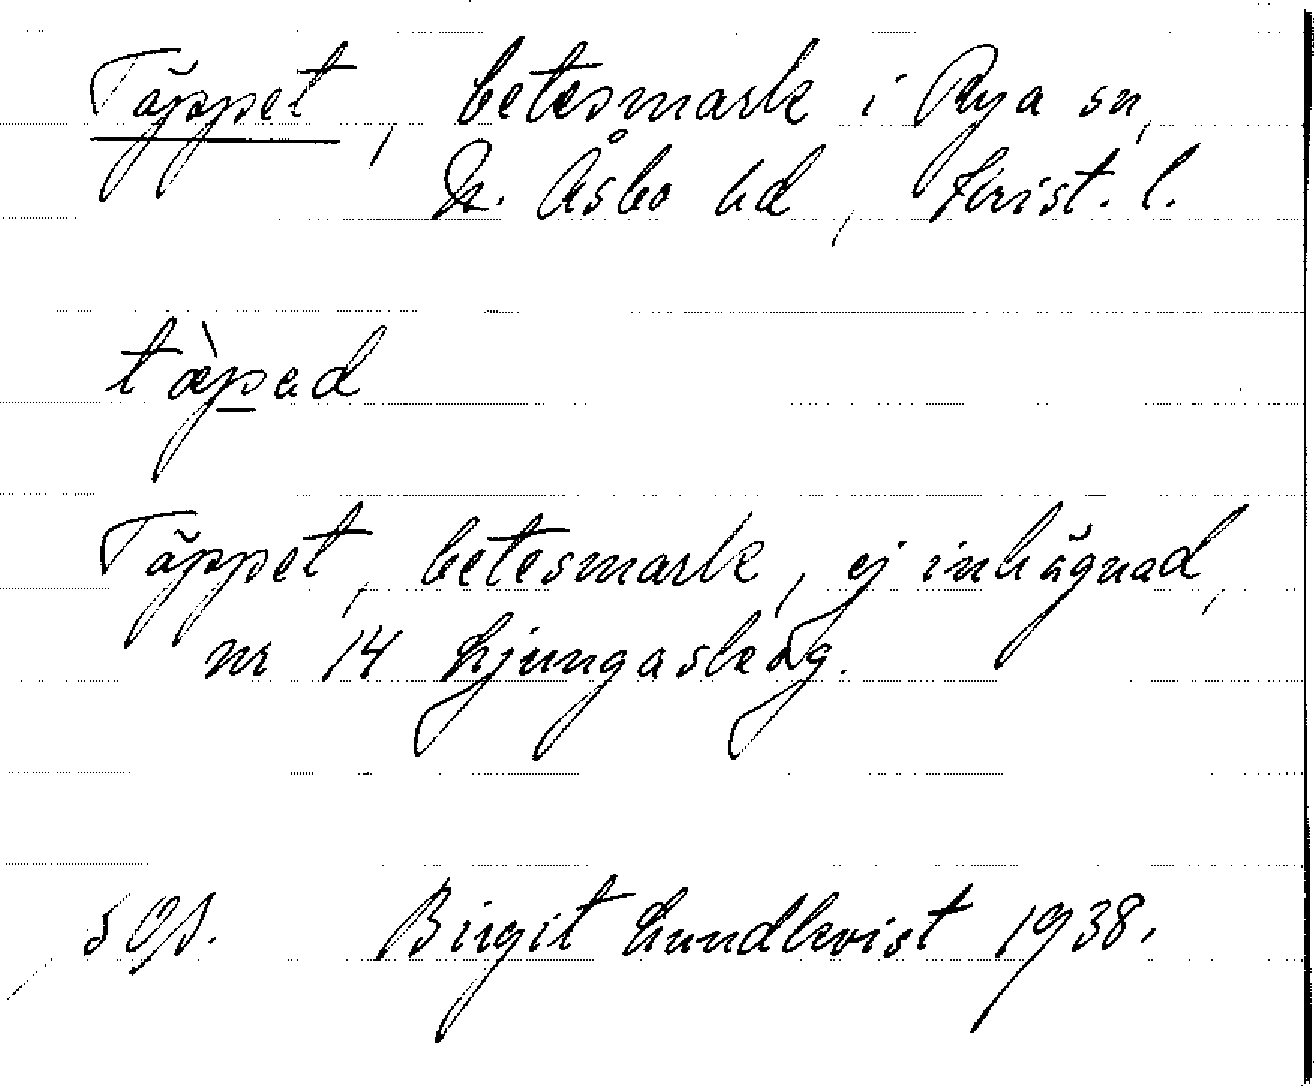 Täppet, betesmark i Rya sn,
N. Åsbo hd, Krist. l.
tæ̀p̲ad
Täppet, betesmark, ej inhägnad,
nr 14 Ljungaskog.
Birgit Lundkvist 1938.